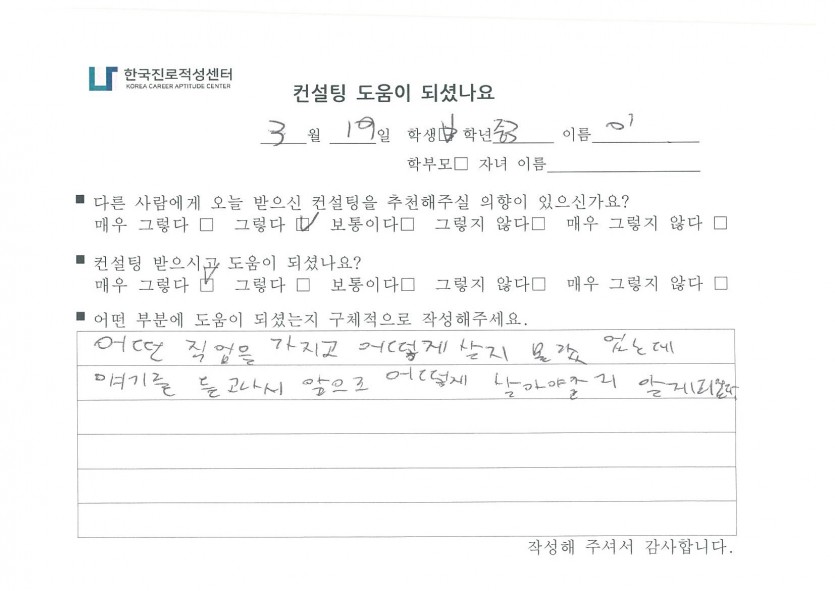 한국진로적성센터
KOREA CAREER APTITUDE CENTER
컨설팅 도움이 되셨나요
3월 19일 학생☑ 학년 중3 이름 이
학부모□ 자녀 이름
■ 다른 사람에게 오늘 받으신 컨설팅을 추천해주실 의향이 있으신가요?
매우 그렇다 □ 그렇다 ☑ 보통이다□ 그렇지 않다□ 매우 그렇지 않다 □
■ 컨설팅 받으시고 도움이 되셨나요?
매우 그렇다 ☑ 그렇다 □ 보통이다□ 그렇지 않다□ 매우 그렇지 않다 □
■ 어떤 부분에 도움이 되셨는지 구체적으로 작성해주세요.
어떤 직업을 가지고 어떻게 살지 몰랐 었는데
얘기를 듣고나서 앞으로 어떻게 살아야할지 알게되었다
작성해 주셔서 감사합니다.